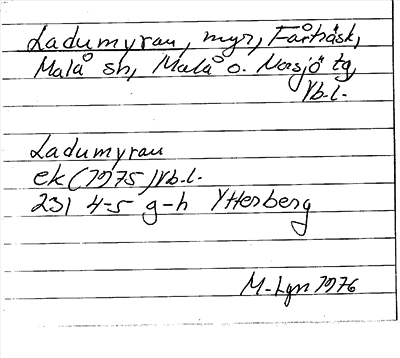 Ladumyran, myr, Fårträsk,
Malå sn, Malå o. Norsjö tg,
Vb.l.
Ladumyran
ek (1975) Vb.l.
231 4-5 g-h Ytterberg
M-Lgn 1976